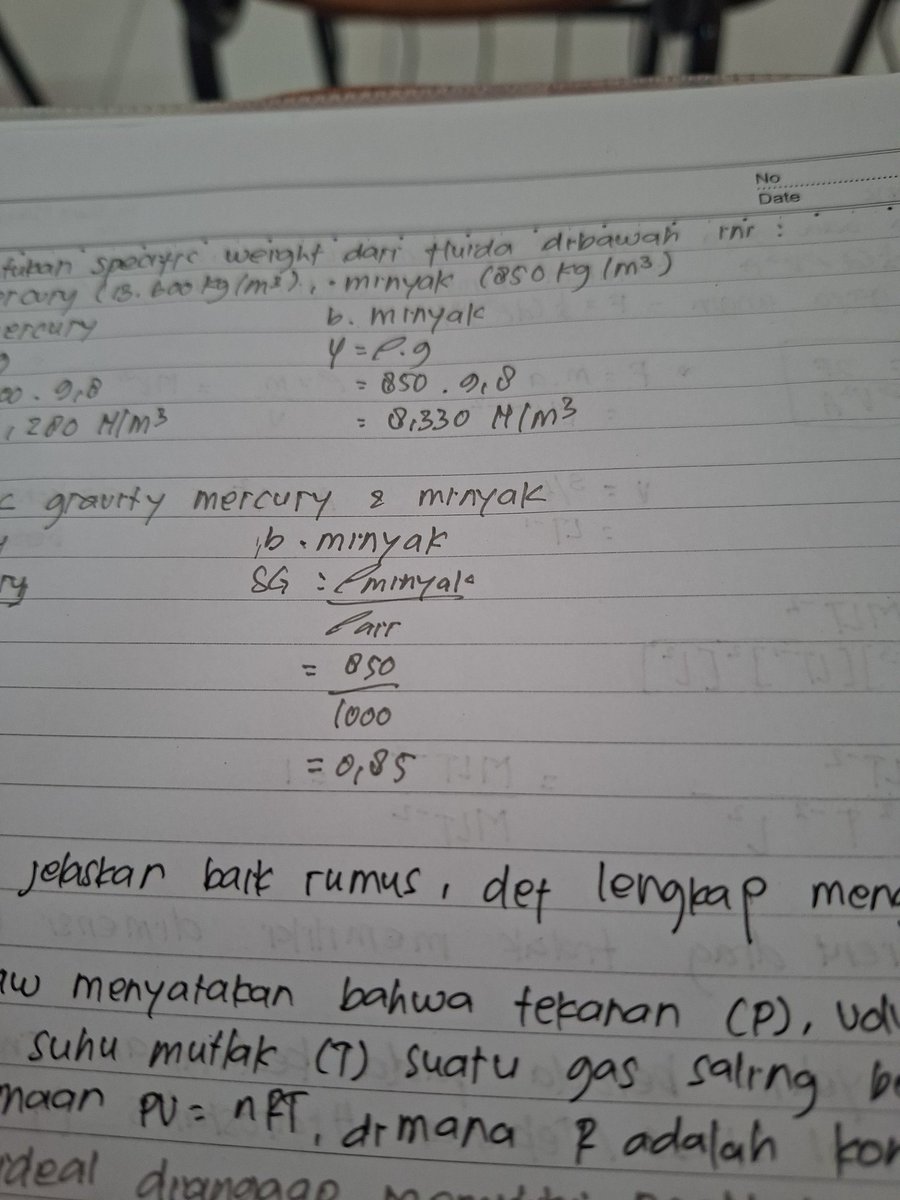 No
Date
tukan specific weight dari fluida dibawah ini :
ercury (13.600 kg/m³), · minyak (850 kg/m³)
ercury
b. minyak
γ = ρ.g
00 . 9,8
= 850 . 9,8
, 280 N/m³
= 8,330 N/m³
c gravity mercury & minyak
b. minyak
ry
SG : ρminyak
ρair
= 850
1000
= 0,85
jelaskan baik rumus, def lengkap meng
aw menyatakan bahwa tekanan (P), volu
suhu mutlak (T) suatu gas saling be
maan PV = nRT, dimana R adalah kon
ideal dianggap